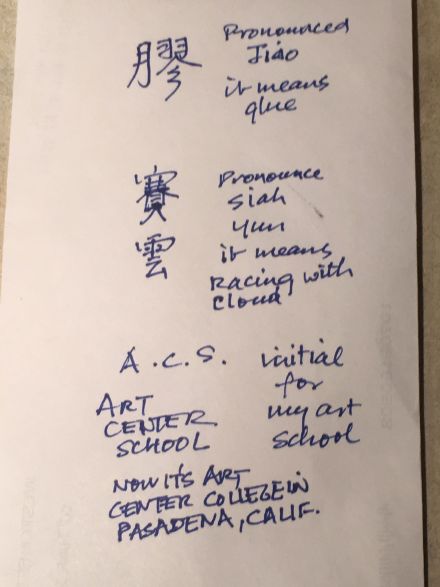 膠
Pronounced
Jiao
it means
glue
賽
雲
Pronounce
Siah
yun
it means
Racing with
Cloud
A.C.S.
initial
for
my art
school
ART
CENTER
SCHOOL
NOW IT'S ART
CENTER COLLEGE IN
PASADENA, CALIF.